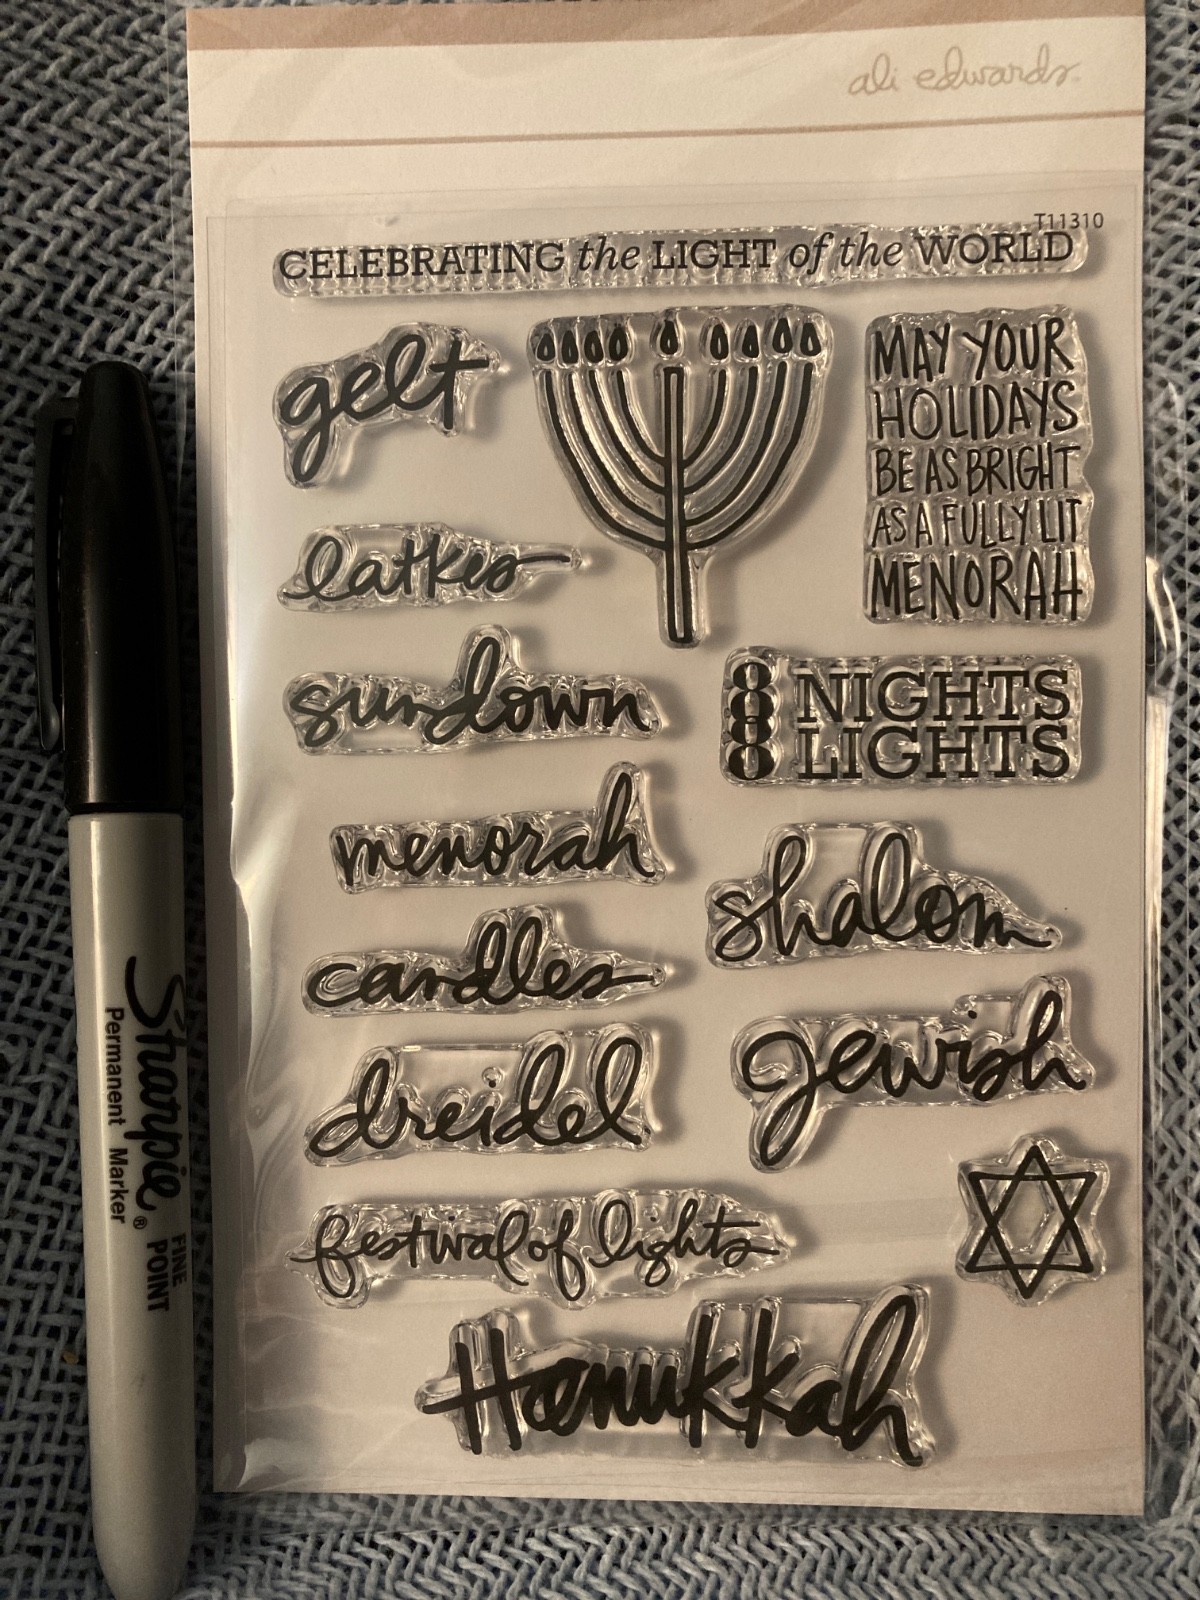 ali edwards.
T11310
CELEBRATING the LIGHT of the WORLD
gelt
MAY YOUR
HOLIDAYS
BE AS BRIGHT
AS A FULLY LIT
MENORAH
latkes
sundown
8 NIGHTS
8 LIGHTS
menorah
shalom
candles
Jewish
dreidel
festival of lights
Hanukkah
Sharpie®
Permanent Marker
FINE
POINT